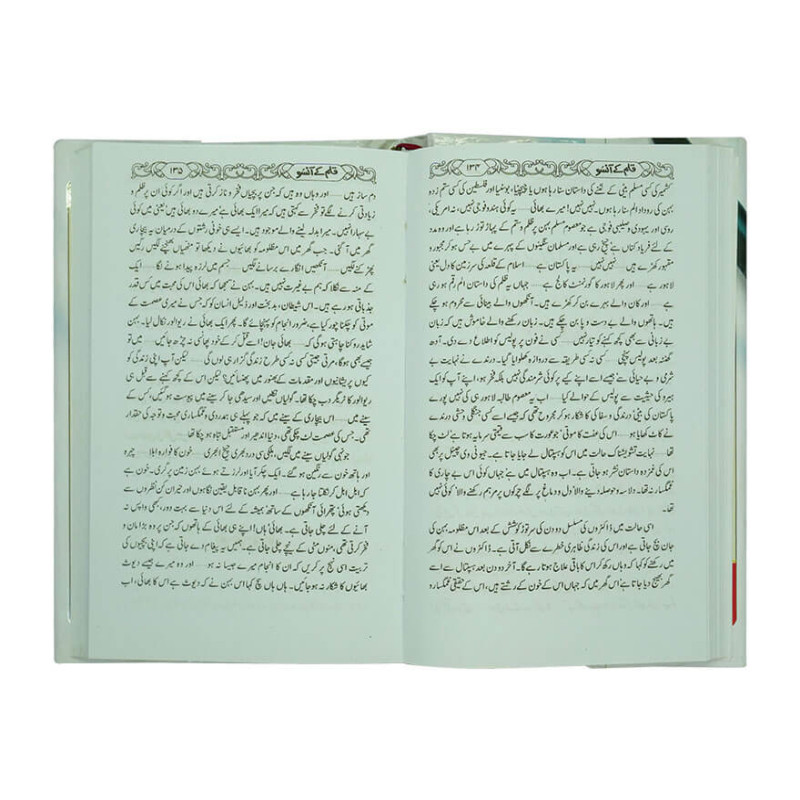 قلم کے آنسو ۱۳۴
کشمیر کی کسی مسلم بیٹی کے لٹنے کی داستان سنا رہا ہوں یا چیچنیا، بوسنیا اور فلسطین کی کسی ستم زدہ
بہن کی روداد الم سنا رہا ہوں۔ نہیں نہیں! میرے بھائی ...... یہ کوئی ہندو فوجی نہیں، نہ امریکی،
روسی اور یہودی و صلیبی فوجی ہے جو معصوم مسلم بہن پر ظلم و ستم کے پہاڑ توڑ رہا ہے اور وہ مدد
کے لئے فریاد کناں ہے چیخ رہی ہے اور مسلمان سنگینوں کے پہرے میں بے حس ہو کر مجبور و
مقہور کھڑے ہیں ...... نہیں نہیں ...... یہ پاکستان ہے ...... اسلام کے قلعہ کی سرزمین کا دل یعنی
لاہور ہے ...... اور پھر لاہور کا گورنمنٹ کالج ہے ...... جہاں یہ ظلم کی داستان الم رقم ہو رہی
ہے ...... اور کان والے بہرے بن کر کھڑے ہیں۔ آنکھوں والے بینائی سے محروم ہو چکے
ہیں۔ ہاتھوں والے بے دست و پا بن چکے ہیں۔ زبان رکھنے والے خاموش ہیں کہ زبان
بے زبانی سے بھی کچھ کہنے کو تیار نہیں ...... کسی نے فون پر پولیس کو اطلاع دے دی۔ آدھ
گھنٹہ بعد پولیس پہنچی ...... کسی نہ کسی طریقہ سے دروازہ کھلوایا گیا۔ درندے نے نہایت بے
شرمی و بے حیائی سے جیسے اسے اپنے کیے پر کوئی شرمندگی نہیں بلکہ فخر ہو، اپنے آپ کو ایک
ہیرو کی حیثیت سے پولیس کے حوالے کیا ...... اب یہ معصوم طالبہ لاہور ہی کی نہیں پورے
پاکستان کی بیٹی درندگی و سفاکی کا شکار ہو کر مجروح تھی کہ جیسے اسے کسی جنگلی وحشی درندے
نے کاٹ کھایا ہو ...... اس کی عفت کا موتی ' جو عورت کا سب سے قیمتی سرمایہ ہوتا ہے' لٹ چکا
تھا ...... نہایت تشویشناک حالت میں اس کو ہسپتال لے جایا جاتا ہے۔ جیو ٹی وی چینل پر بھی
اس کی غمزدہ داستان نشر ہو جاتی ہے۔ اب وہ ہسپتال میں ہے' جہاں کوئی اس بے چاری کا
غمگسار نہ تھا۔ دلاسہ و حوصلہ دینے والا دل و دماغ پر لگے چرکوں پر مرہم رکھنے والا' کوئی نہیں
تھا۔
اسی حالت میں ڈاکٹروں کی مسلسل دو دن کی سر توڑ کوشش کے بعد اس مظلومہ بہن کی
جان بچ جاتی ہے اور اس کی زندگی ظاہری خطرے سے نکل آتی ہے۔ ڈاکٹروں نے اس کو گھر
میں رکھنے کو کہا کہ وہاں رکھ کر اس کا باقی علاج ہوتا رہے گا۔ آخر دو دن بعد ہسپتال سے اسے
گھر بھیج دیا جاتا ہے' اس گھر میں کہ جہاں اس کے خون کے رشتے ہیں، اس کے حقیقی غمگسار و
قلم کے آنسو ۱۳۵
دم ساز ہیں ...... اور وہاں وہ ہیں کہ جن پر بچیاں فخر و ناز کرتی ہیں اور اگر کوئی ان پر ظلم و
زیادتی کرنے لگے تو فخر سے کہتی ہیں کہ میرا ایک بھائی ہے' میرے دو بھائی ہیں' یعنی میں کوئی
بے سہارا نہیں۔ میرا بدلہ لینے والے موجود ہیں۔ ایسے ہی خونی رشتوں کے درمیان یہ بیچاری
گھر میں آ گئی۔ جب گھر میں اس مظلومہ کو بھائیوں نے دیکھا تو مٹھیاں بھینچنے لگیں' رگیں
پھڑکنے لگیں ...... آنکھیں انگارے برسانے لگیں ...... جسم میں لرزہ پیدا ہونے لگا ...... ایک
کے منہ سے نکلا کہ ہم بے غیرت نہیں ہیں۔ بہن نے سمجھا کہ بھائی اس کی محبت میں کس قدر
جذباتی ہو رہے ہیں۔ اس شیطان، بدبخت اور ذلیل انسان کو کہ جس نے میری عصمت کے
موتی کو چکنا چور کیا ہے، ضرور انجام کو پہنچائے گا۔ پھر ایک بھائی نے ریوالور نکال لیا۔ بہن
شاید روکنا چاہتی ہو گی کہ ...... بھائی جان! اسے قتل کر کے خود پھانسی نہ چڑھ جائیں' ...... میں
جیسے بھی ہو گا، مرتی جیتی کسی نہ کسی طرح زندگی گزار ہی لوں گی ...... لیکن آپ اپنی زندگی کو
کیوں پریشانیوں اور مقدمات کے بھنور میں پھنسائیں؟ لیکن اس کے کچھ کہنے سے قبل ہی
ریوالور کا ٹریگر دب چکا تھا۔ گولیاں نکلیں اور سیدھی جا کر سینے میں پیوست ہو گئیں، کس کے
سینے میں ...... اس بیچاری کے سینے میں کہ جو پہلے ہی ہمدردی و غمگساری محبت و توجہ کی حقدار
تھی۔ جس کی عصمت لٹ چکی تھی، دنیا اندھیر اور مستقبل تباہ ہو چکا تھا۔
جونہی گولیاں سینے میں لگیں، ہلکی سی درد بھری چیخ ابھری ...... خون کا فوارہ ابلا ...... چہرہ
اور ہاتھ خون سے رنگین ہو گئے۔ ایک چکر آیا اور لرزتے ہوئے زمین پر گری۔ خون ہے
کہ ابل ابل کر نکلتا جا رہا ہے ...... اور پھر بہن ناقابل یقین نگاہوں اور حیران کن نظروں سے
دیکھتی ہوئی' پتھرائی آنکھوں کے ساتھ' ہمیشہ کے لئے اس دنیا سے بہت دور، کبھی واپس نہ
آنے کے لئے چلی جاتی ہے۔ بھائی' ہاں! اپنے ہی بھائی کے ہاتھوں کہ جن پر وہ بڑا مان و
فخر کرتی تھی، منوں مٹی کے نیچے چلی جاتی ہے۔ ہمیں یہ پیغام دے جاتی ہے کہ اپنی بچیوں کی
تربیت اسی نہج پر کریں کہ ان کا انجام میرے جیسا نہ ہو ...... اور وہ میرے جیسے دیوث
بھائیوں کا شکار نہ ہو جائیں۔ ہاں ہاں سچ کہا اس بہن نے کہ دیوث ہے اس کا بھائی، اب